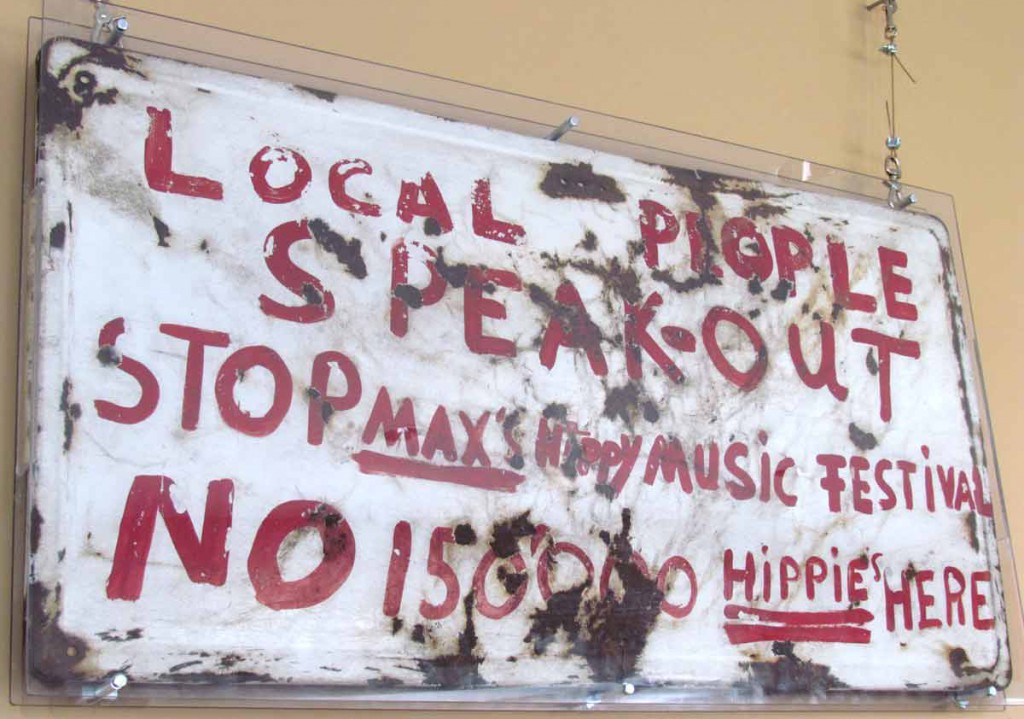 LOCAL PEOPLE
SPEAK-OUT
STOP MAX'S HIPPY MUSIC FESTIVAL
NO 150000 HIPPIE'S HERE